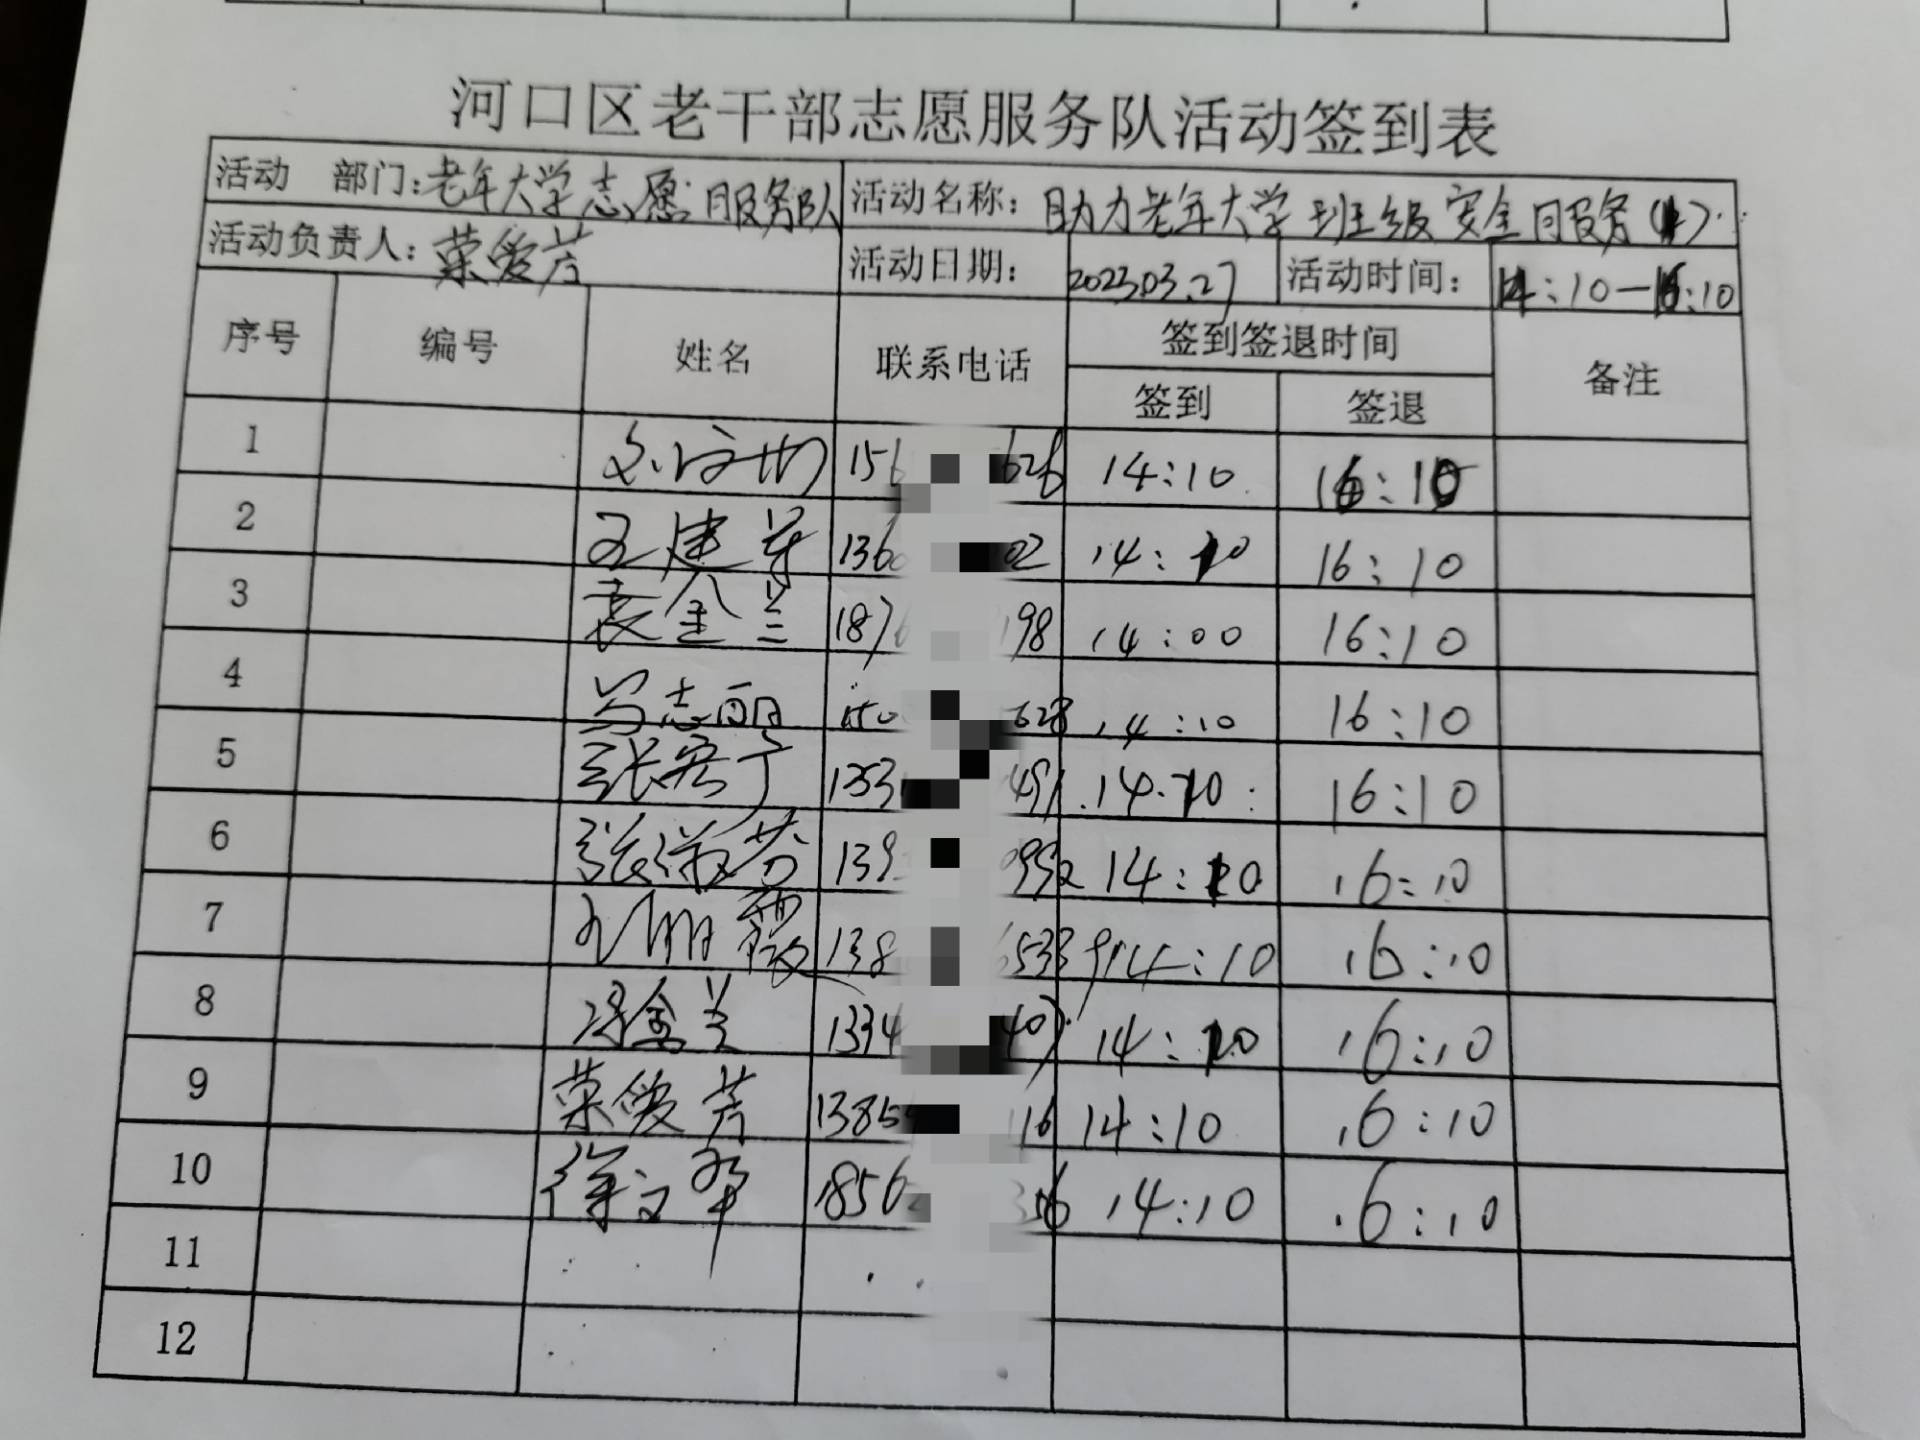 河口区老干部志愿服务队活动签到表
活动 部门:老年大学志愿服务队 活动名称: 助力老年大学班级安全服务
活动负责人: 荣爱芹 活动日期: 2023.03.27 活动时间: 14:10-16:10
序号 编号 姓名 联系电话 签到签退时间 备注
签到 签退
1 156 626 14:10 16:10
2 王建军 136 02 14:10 16:10
3 袁金兰 187 198 14:00 16:10
4 马志丽 150 628 14:10 16:10
5 张客宁 133 491 14:10 16:10
6 张淑芬 139 0992 14:10 16:10
7 王丽霞 138 6533 14:10 16:10
8 冯金兰 1334 407 14:10 16:10
9 荣爱芹 1385 116 14:10 16:10
10 徐文华 1856 356 14:10 16:10
11
12